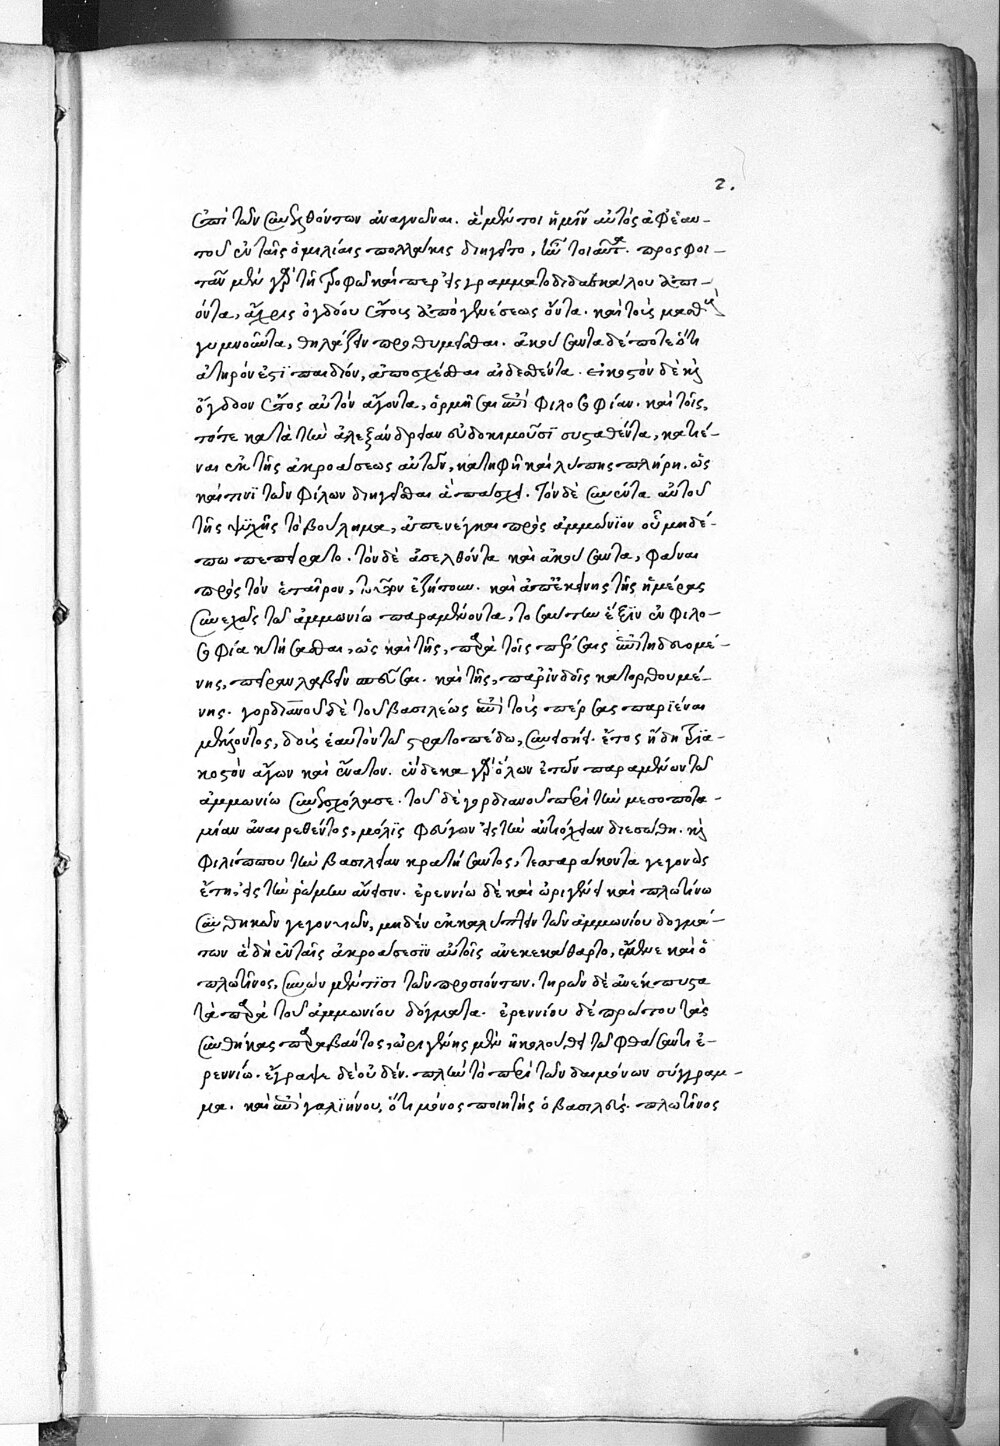 2.
ἐπὶ τῶν συνελθόντων ἀναγνῶναι. ἃ μέντοι ἡμῖν αὐτὸς ἀφ' ἑαυ-
τοῦ ἐν ταῖς ὁμιλίαις πολλάκις διηγεῖτο, ἦν τοιαῦτα. προσφοι-
τᾶν μὲν γὰρ τῇ τροφῷ καίπερ εἰς γραμματοδιδασκάλου ἀπι-
όντα, ἄχρις ὀγδόου ἔτους ἀπὸ γενέσεως ὄντα. καὶ τοὺς μαζοὺς
γυμνοῦντα, θηλάζειν προθυμεῖσθαι. ἀκούσαντα δέ ποτε ὅτι
ἀτηρόν ἐστὶ παιδίον, ἀποσχέσθαι αἰδεσθέντα. εἰκοστὸν δὲ καὶ
ὄγδοον ἔτος αὐτὸν ἄγοντα, ὁρμῆσαι ἐπὶ φιλοσοφίαν. καὶ τοῖς,
τότε κατὰ τὴν ἀλεξάνδρειαν εὐδοκιμοῦσι συσταθέντα, κατιέ-
ναι ἐκ τῆς ἀκροάσεως αὐτῶν, κατηφῆ καὶ λύπης πλήρη. ὡς
καί τινι τῶν φίλων διηγεῖσθαι ἃ πάσχει. τὸν δὲ συνέντα αὐτοῦ
τῆς ψυχῆς τὸ βούλημα, ἀπενέγκαι πρὸς ἀμμώνιον οὗ μηδέ-
πω πεπείρατο. τὸν δὲ εἰσελθόντα καὶ ἀκούσαντα, φάναι
πρὸς τὸν ἑταῖρον, τοῦτον ἐζήτουν. καὶ ἀπ' ἐκείνης τῆς ἡμέρας
συνεχῶς τῷ ἀμμωνίῳ παραμένοντα, τοσαύτην ἕξιν ἐν φιλο-
σοφίᾳ κτήσασθαι, ὡς καὶ τῆς, παρὰ τοῖς πέρσαις ἐπιτηδευομέ-
νης, πεῖραν λαβεῖν σπεῦσαι. καὶ τῆς, παρ' ἰνδοῖς κατορθουμέ-
νης. γορδιανοῦ δὲ τοῦ βασιλέως ἐπὶ τοὺς πέρσας παριέναι
μέλλοντος, δοὺς ἑαυτὸν τῷ στρατοπέδῳ, συνεισῄει. ἔτος ἤδη τρια-
κοστὸν ἄγων καὶ ἔνατον. ἕνδεκα γὰρ ὅλων ἐτῶν παραμένων τῷ
ἀμμωνίῳ συνεσχόλασε. τοῦ δὲ γορδιανοῦ περὶ τὴν μεσοποτα-
μίαν ἀναιρεθέντος, μόλις φεύγων εἰς τὴν ἀντιόχειαν διεσώθη. καὶ
φιλίππου τὴν βασιλείαν κρατήσαντος, τεσσαράκοντα γεγονὼς
ἔτη, εἰς τὴν ῥώμην ἄνεισιν. ἐρεννίῳ δὲ καὶ ὠριγένει καὶ πλωτίνῳ
συνθηκῶν γεγονυιῶν, μηδὲν ἐκκαλύπτειν τῶν ἀμμωνίου δογμά-
των ἃ δὴ ἐν ταῖς ἀκροάσεσιν αὐτοῖς ἀνεκεκάθαρτο, ἔμενε καὶ ὁ
πλωτῖνος, συνὼν μέν τισι τῶν προσιόντων. τηρῶν δὲ ἀνέκπυστα
τὰ παρὰ τοῦ ἀμμωνίου δόγματα. ἐρεννίου δὲ πρώτου τὰς
συνθήκας παραβάντος, ὠριγένης μὲν ἠκολούθει τῷ φθάσαντι ἐ-
ρεννίῳ. ἔγραψε δὲ οὐδέν. πλὴν τὸ περὶ τῶν δαιμόνων σύγγραμ-
μα. καὶ ἐπὶ γαλιήνου, ὅτι μόνος ποιητὴς ὁ βασιλεύς. πλωτῖνος